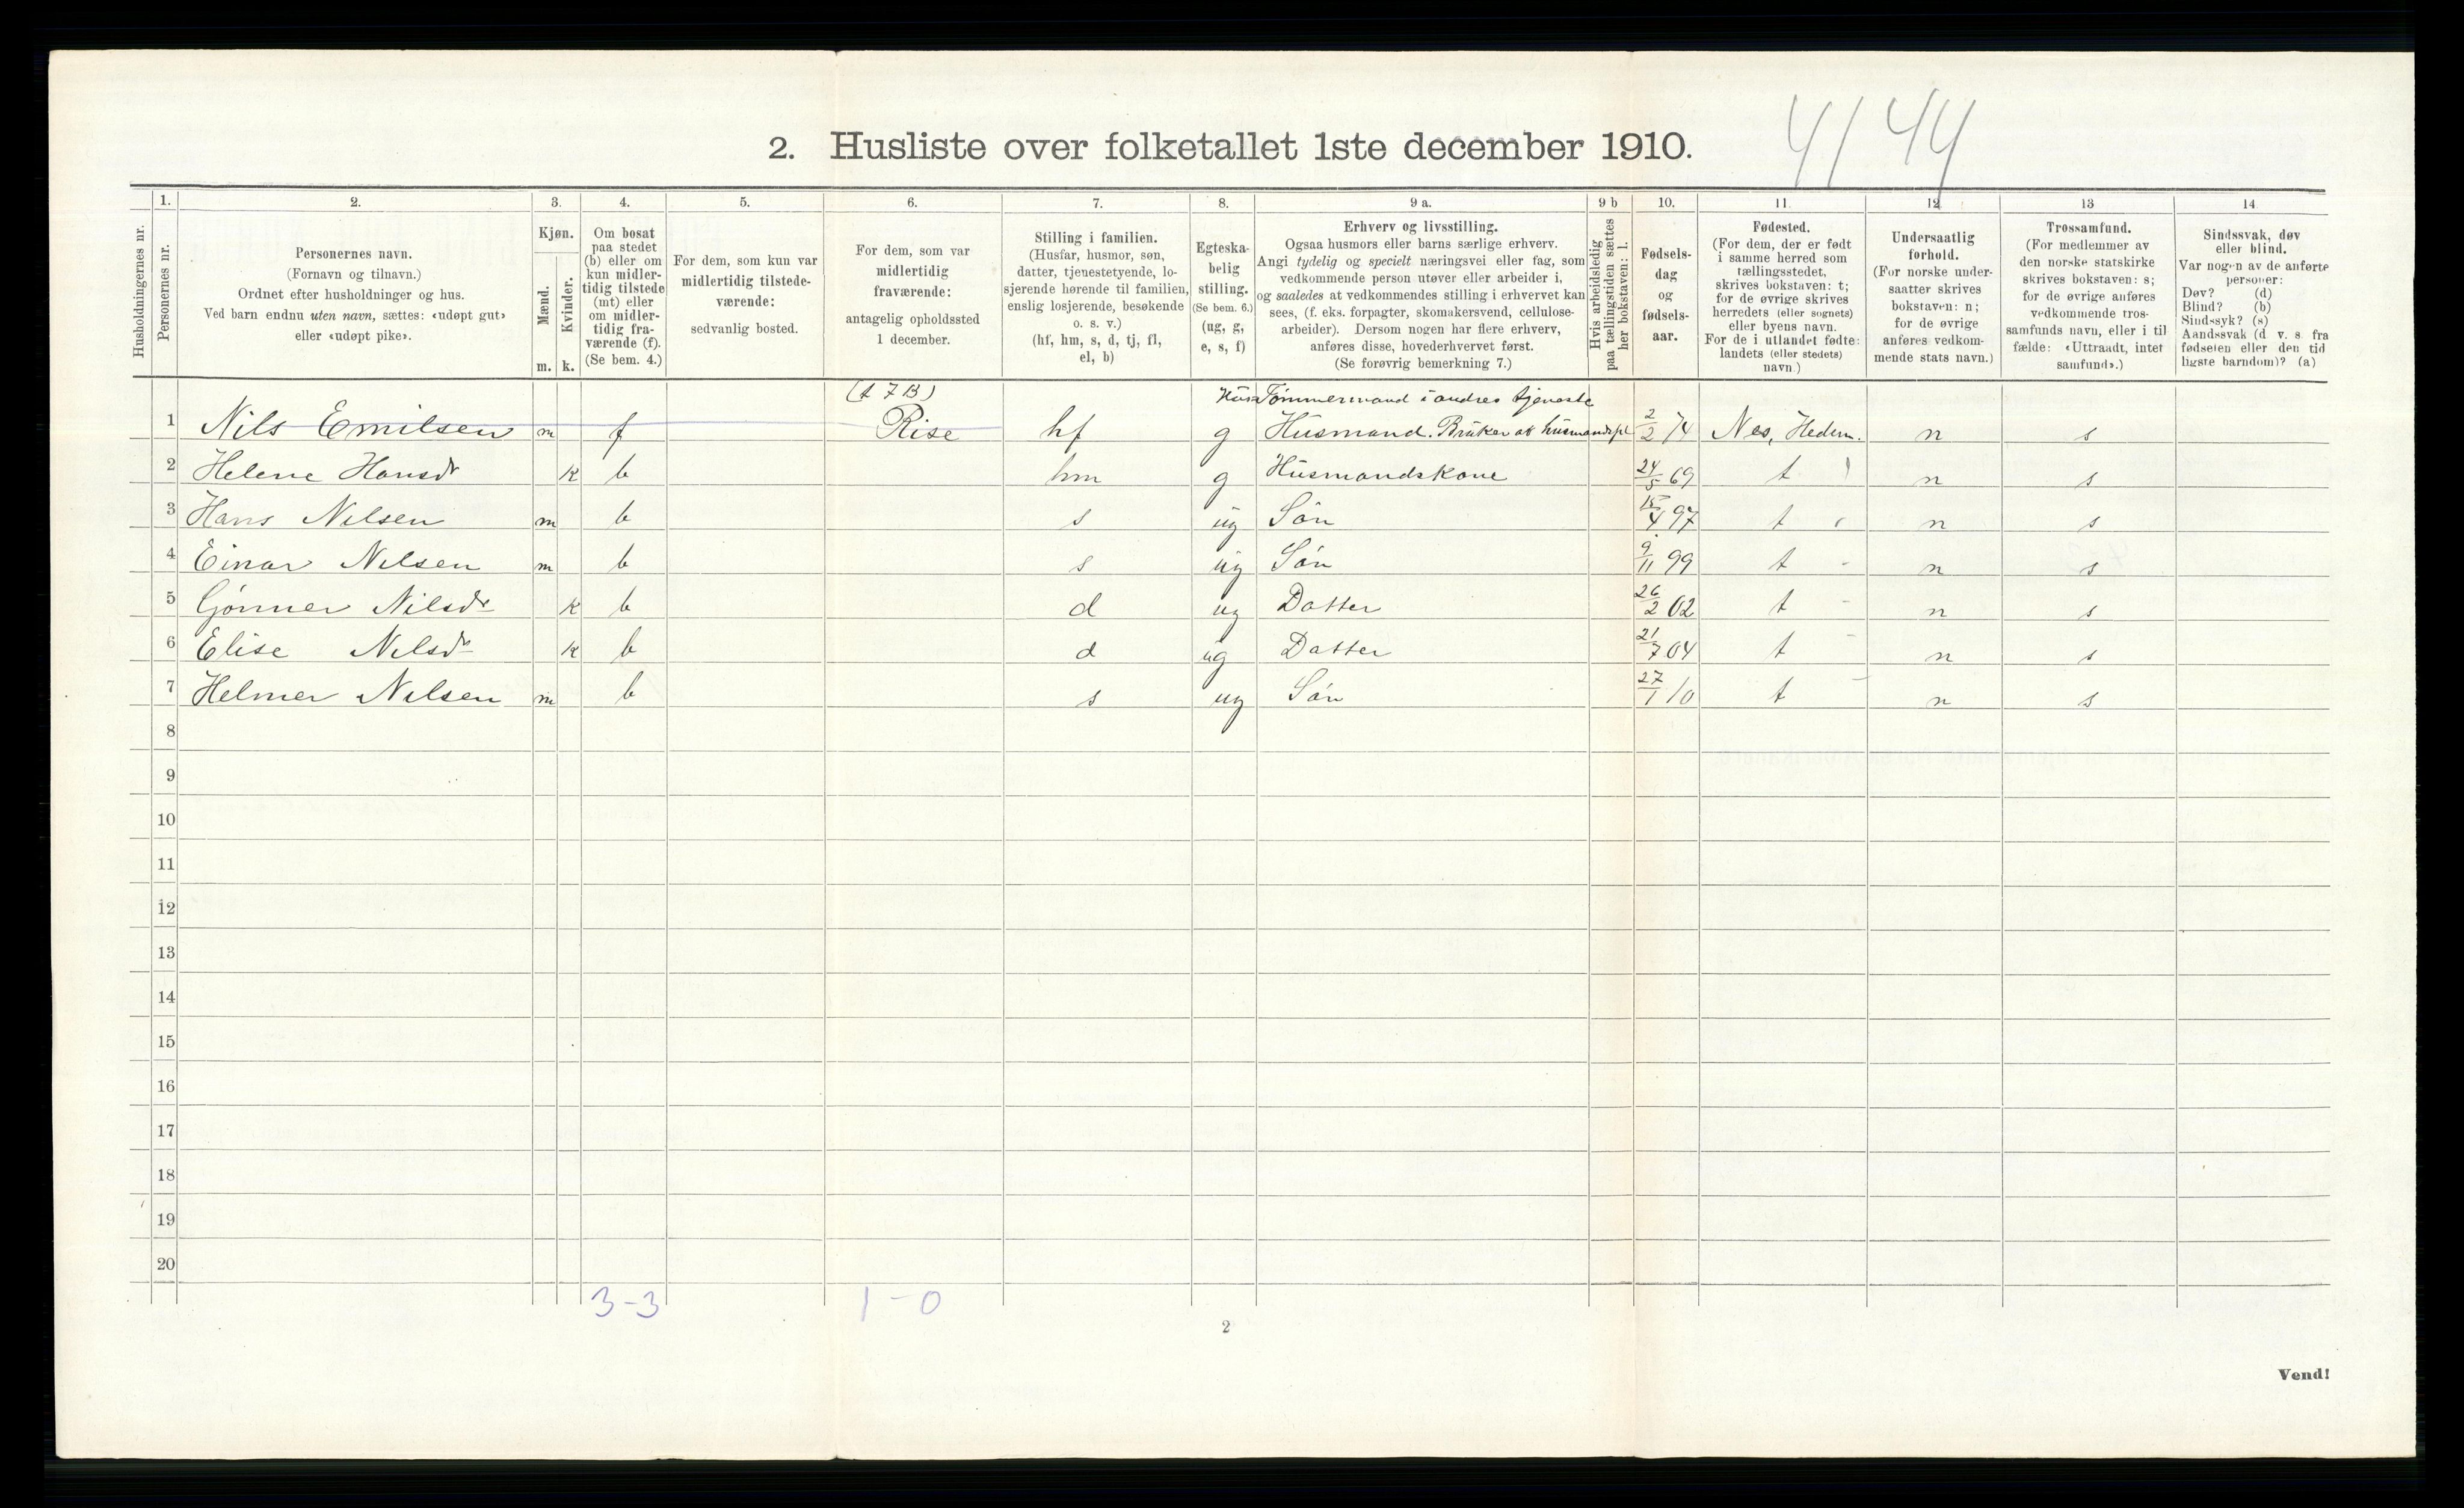 4/44
2. Husliste over folketallet 1ste december 1910.
1. 2. 3. 4. 5. 6. 7. 8. 9 a. 9 b 10. 11. 12 13 14
Husholdningernes nr.
Personernes nr.
Personernes navn.
(Fornavn og tilnavn.)
Ordnet efter husholdninger og hus.
Ved barn endnu uten navn, sættes: «udøpt gut»
eller «udøpt pike».
Kjøn.
Mænd.
Kvinder.
m. k.
Om bosat
paa stedet
(b) eller om
kun midler-
tidig tilstede
(mt) eller
om midler-
tidig fra-
værende (f).
(Se bem. 4.)
For dem, som kun var
midlertidig tilstede-
værende:
sedvanlig bosted.
For dem, som var
midlertidig
fraværende:
antagelig opholdssted
1 december.
Stilling i familien.
(Husfar, husmor, søn,
datter, tjenestetyende, lo-
sjerende hørende til familien,
enslig losjerende, besøkende
o. s. v.)
(hf, hm, s, d, tj, fl,
el, b)
Egteska-
belig
stilling.
(Se bem. 6.)
(ug, g,
e, s, f)
Erhverv og livsstilling.
Ogsaa husmors eller barns særlige erhverv.
Angi tydelig og specielt næringsvei eller fag, som
vedkommende person utøver eller arbeider i,
og saaledes at vedkommendes stilling i erhvervet kan
sees, (f. eks. forpagter, skomakersvend, cellulose-
arbeider). Dersom nogen har flere erhverv,
anføres disse, hovederhvervet først.
(Se forøvrig bemerkning 7.)
Hvis arbeidsledig
paa tællingstiden sættes
her bokstaven: l.
Fødsels-
dag
og
fødsels-
aar.
Fødested.
(For dem, der er født
i samme herred som
tællingsstedet,
skrives bokstaven: t;
for de øvrige skrives
herredets (eller sognets)
eller byens navn.
For de i utlandet fødte:
landets (eller stedets)
navn.)
Undersaatlig
forhold.
(For norske under-
saatter skrives
bokstaven: n;
for de øvrige
anføres vedkom-
mende stats navn.)
Trossamfund.
(For medlemmer av
den norske statskirke
skrives bokstaven: s;
for de øvrige anføres
vedkommende tros-
samfunds navn, eller i til
fælde: «Uttraadt, intet
samfund».)
Sindssvak, døv
eller blind.
Var nogen av de anførte
personer:
Døv? (d)
Blind? (b)
Sindssyk? (s)
Aandssvak (d v. s fra
fødselen eller den tid
ligste barndom)? (a)
(t 7 B) Tømmermand i andres tjeneste
1 Nils Emilsen m f Rise hf g Husmand. Bruker af husmandspl 2/2 74 Nes, Hedem. n s
2 Helene Hansdr k b hm g Husmandskone 24/5 69 t n s
3 Hans Nilsen m b s ug Søn 15/4 97 t n s
4 Einar Nilsen m b s ug Søn 9/11 99 t - n s
5 Gønner Nilsdr k b d ug Datter 26/2 02 t - n s
6 Elise Nilsdr k b d ug Datter 21/7 04 t - n s
7 Helmer Nilsen m b s ug Søn 27/1 10 t - n s
8
9
10
11
12
13
14
15
16
17
18
19
20
3-3 1-0
2
Vend!